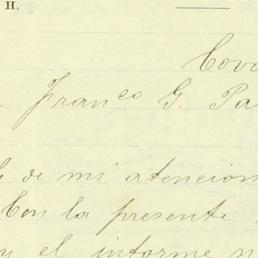 H.
Franco G. Pa
de mi atencion
Con la presente
y el informe n